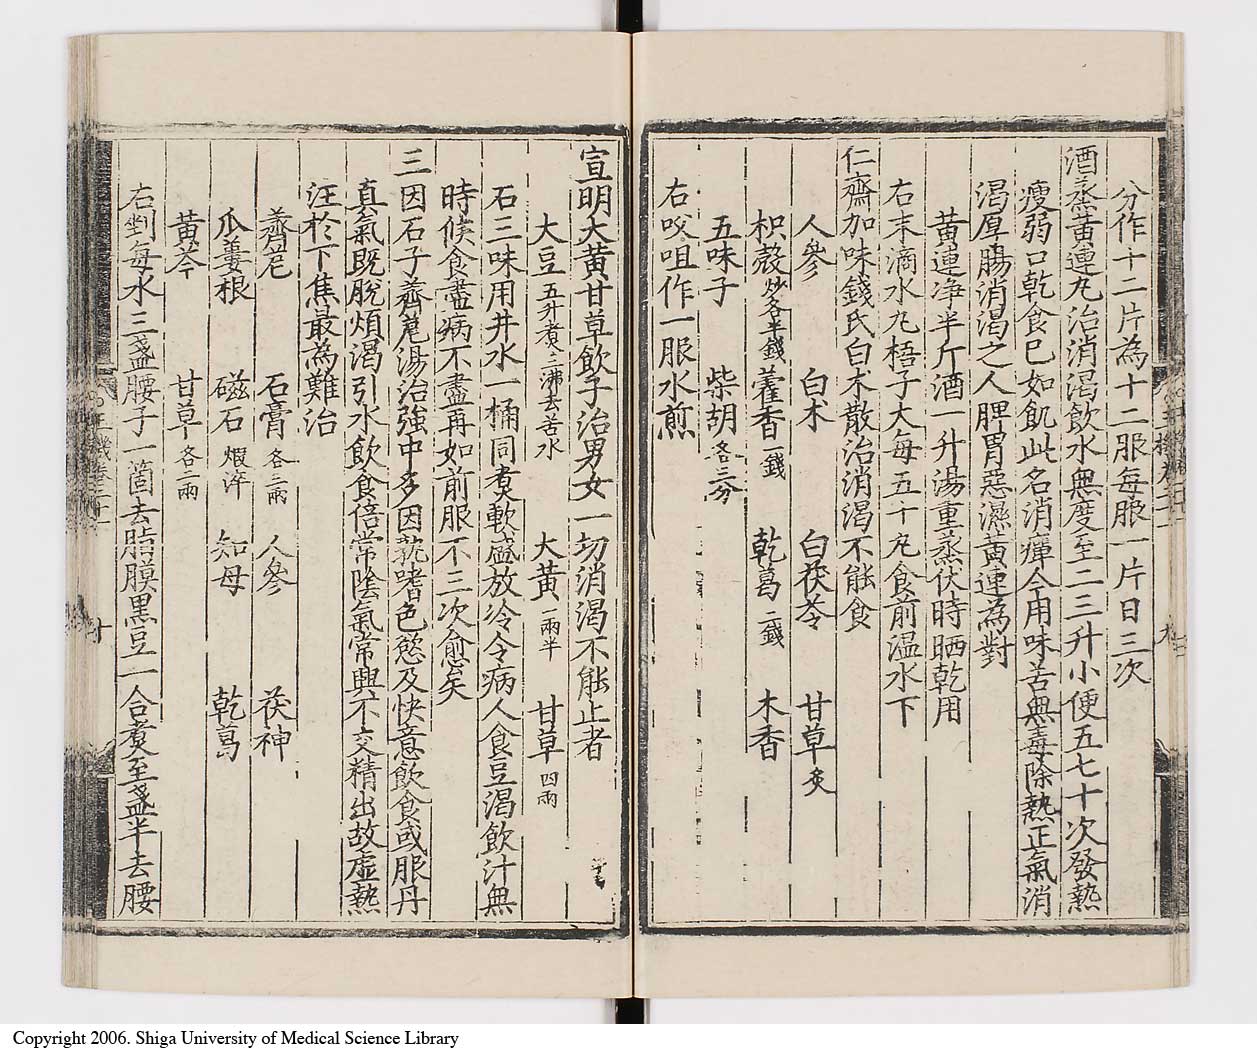 分作十二片為十二服每服一片日三次
酒蒸黃連丸治消渴飲水無度至二三升小便五七十次發熱
瘦弱口乾食已如飢此名消癉今用味苦無毒除熱正氣消
渴厚腸消渴之人脾胃惡濕黃連為對
黃連净半斤酒一升湯重蒸伏時晒乾用
右末滴水丸梧子大每五十丸食前温水下
仁齋加味錢氏白术散治消渴不能食
人參 白术 白茯苓 甘草炙
枳殼炒各半錢 藿香一錢 乾葛二錢 木香
五味子 柴胡各三分
右㕮咀作一服水煎
宣明大黃甘草飲子治男女一切消渴不能止者
大豆五升煮二三沸去苦水 大黃一兩半 甘草四兩
右三味用井水一桶同煑軟盛放冷令病人食豆渴飲汁無
時候食盡病不盡再如前服不三次愈矣
三因石子薺苨湯治強中多因耽嗜色慾及快意飲食或服丹
真氣既脫煩渴引水飲食倍常陰氣常興不交精出故虛熱
注於下焦最為難治
薺苨 石膏各三兩 人參 茯神
瓜蔞根 磁石煆淬 知母 乾葛
黃芩 甘草各二兩
右剉每水三盞腰子一箇去脂膜黑豆一合煑至盞半去腰
Copyright 2006. Shiga University of Medical Science Library